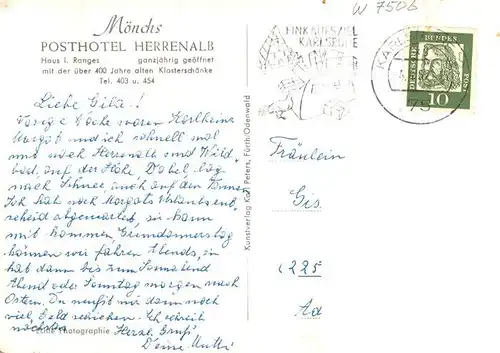 W 7506
Mönchs
POSTHOTEL HERRENALB
Haus I. Ranges ganzjährig geöffnet
mit der über 400 Jahre alten Klosterschänke
Tel. 403 u. 454
Liebe Gila!
Vorige Woche waren Karlheinz
Margot und ich schnell mal
mit nach Herrenalb und Wild-
bad, auf der Höhe, Dobel lag
noch Schnee, auch auf den
Ich hab noch Margots Urlaubsent-
scheid abgewartet, sie kann
mit kommen Gründonnerstag
können wir fahren Abends, sie
hat dann bis zum Sonnabend
Abend oder Sonntag morgen nach
Ostern. Du mußt mir dann noch
viel Geld schicken. Ich schreib
nächstens Herzl. Gruß
Deine Mutti
Echte Photographie
Kunstverlag Karl Peters, Fürth/Odenwald
EINKAUFSZIEL
KARLSRUHE
75
DEUTSCHE BUNDESPOST
10
Fräulein
Gis
(225
Ad